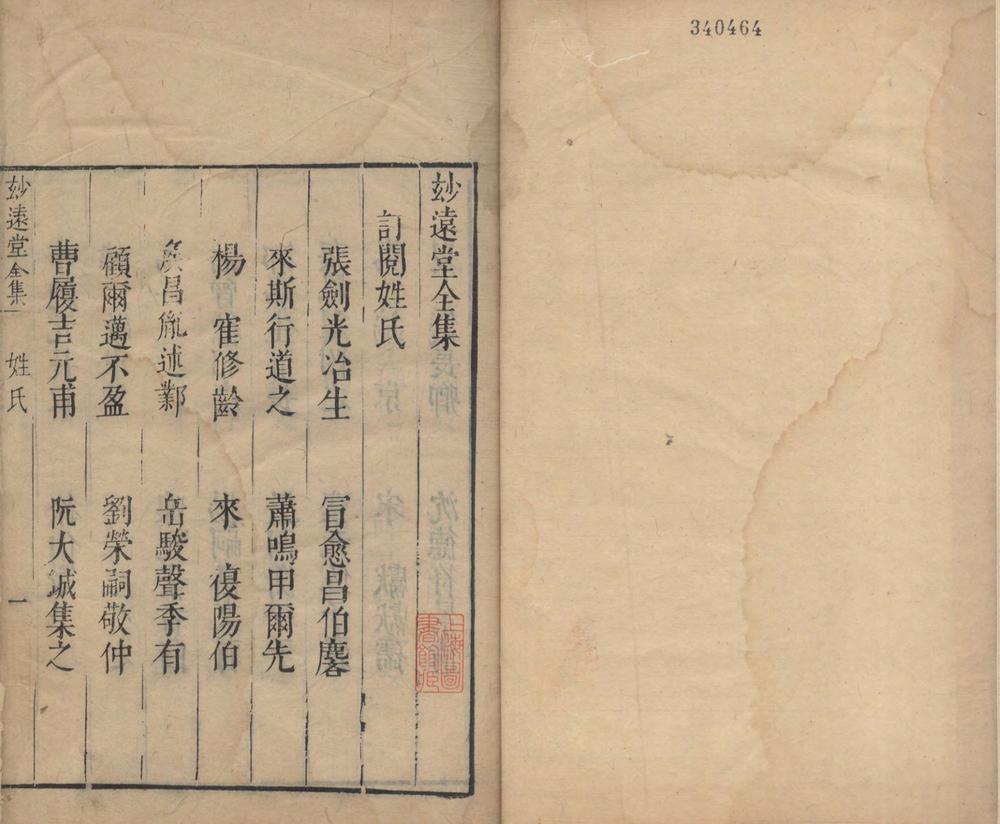 340464
妙遠堂全集
訂閱姓氏
張劍光冶生　冒愈昌伯麐
來斯行道之　蕭鳴甲爾先
楊　寉修齡　來　復陽伯
昌胤述鄴　岳駿聲季有
顧爾邁不盈　劉榮嗣敬仲
曹履吉元甫　阮大鋮集之
妙遠堂全集　姓氏　一
上海圖書館